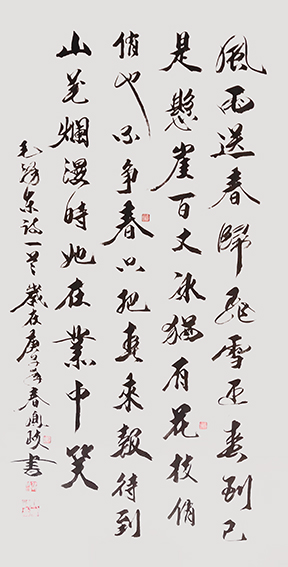 風雨送春歸飛雪迎春到已
是懸崖百丈冰猶有花枝俏
俏也不爭春只把春來報待到
山花爛漫時她在叢中笑
毛澤東詩一首歲在庚子春書